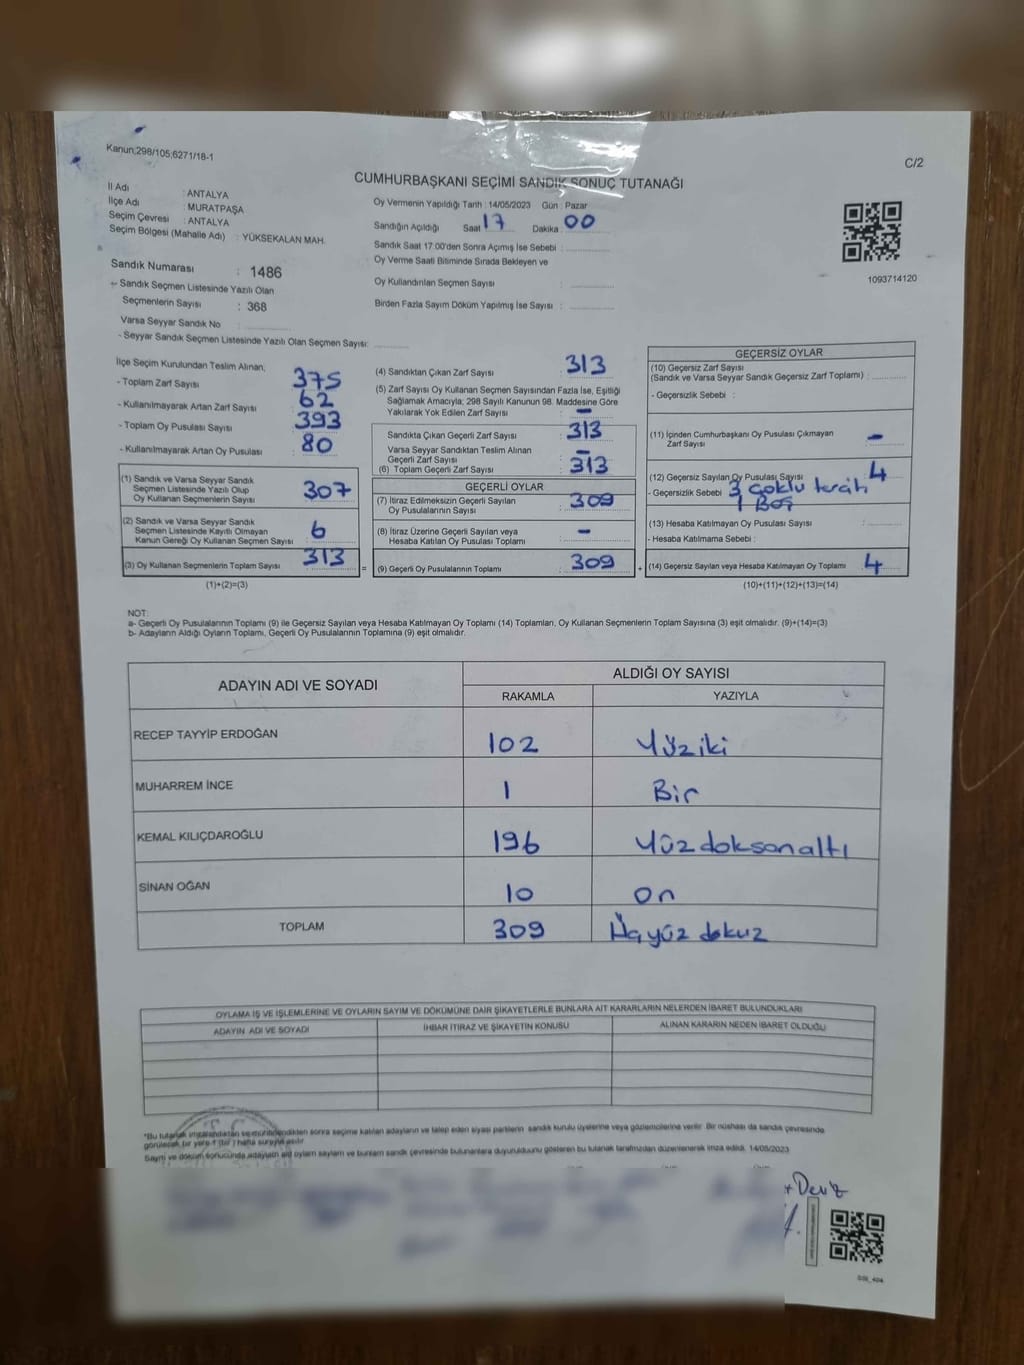 Kanun;298/105;6271/18-1
C/2
CUMHURBAŞKANI SEÇİMİ SANDIK SONUÇ TUTANAĞI
İl Adı : ANTALYA
İlçe Adı : MURATPAŞA
Seçim Çevresi : ANTALYA
Seçim Bölgesi (Mahalle Adı) : YÜKSEKALAN MAH.
Sandık Numarası : 1486
- Sandık Seçmen Listesinde Yazılı Olan
Seçmenlerin Sayısı : 368
Varsa Seyyar Sandık No :
- Seyyar Sandık Seçmen Listesinde Yazılı Olan Seçmen Sayısı:
Oy Vermenin Yapıldığı Tarih : 14/05/2023 Gün : Pazar
Sandığın Açıldığı Saat 17 Dakika 00
Sandık Saat 17:00'den Sonra Açımış İse Sebebi :
Oy Verme Saati Bitiminde Sırada Bekleyen ve
Oy Kullandırılan Seçmen Sayısı :
Birden Fazla Sayım Döküm Yapılmış İse Sayısı :
1093714120
İlçe Seçim Kurulundan Teslim Alınan;
- Toplam Zarf Sayısı 375
- Kullanılmayarak Artan Zarf Sayısı 62
- Toplam Oy Pusulası Sayısı 393
- Kullanılmayarak Artan Oy Pusulası 80
(1) Sandık ve Varsa Seyyar Sandık
Seçmen Listesinde Yazılı Olup
Oy Kullanan Seçmenlerin Sayısı 307
(2) Sandık ve Varsa Seyyar Sandık
Seçmen Listesinde Kayıtlı Olmayan
Kanun Gereği Oy Kullanan Seçmen Sayısı 6
(3) Oy Kullanan Seçmenlerin Toplam Sayısı 313
(1)+(2)=(3)
(4) Sandıktan Çıkan Zarf Sayısı : 313
(5) Zarf Sayısı Oy Kullanan Seçmen Sayısından Fazla İse, Eşitliği
Sağlamak Amacıyla; 298 Sayılı Kanunun 98. Maddesine Göre
Yakılarak Yok Edilen Zarf Sayısı : -
Sandıkta Çıkan Geçerli Zarf Sayısı : 313
Varsa Seyyar Sandıktan Teslim Alınan
Geçerli Zarf Sayısı : -
(6) Toplam Geçerli Zarf Sayısı : 313
GEÇERLİ OYLAR
(7) İtiraz Edilmeksizin Geçerli Sayılan
Oy Pusulalarının Sayısı : 309
(8) İtiraz Üzerine Geçerli Sayılan veya
Hesaba Katılan Oy Pusulası Toplamı : -
= (9) Geçerli Oy Pusulalarının Toplamı : 309
GEÇERSİZ OYLAR
(10) Geçersiz Zarf Sayısı
(Sandık ve Varsa Seyyar Sandık Geçersiz Zarf Toplamı) :
- Geçersizlik Sebebi :
(11) İçinden Cumhurbaşkanı Oy Pusulası Çıkmayan
Zarf Sayısı : -
(12) Geçersiz Sayılan Oy Pusulası Sayısı 4
- Geçersizlik Sebebi 3 çoklu tercih
1 Boş
(13) Hesaba Katılmayan Oy Pusulası Sayısı :
- Hesaba Katılmama Sebebi :
+ (14) Geçersiz Sayılan veya Hesaba Katılmayan Oy Toplamı : 4
(10)+(11)+(12)+(13)=(14)
NOT:
a- Geçerli Oy Pusulalarının Toplamı (9) ile Geçersiz Sayılan veya Hesaba Katılmayan Oy Toplamı (14) Toplamları, Oy Kullanan Seçmenlerin Toplam Sayısına (3) eşit olmalıdır. (9)+(14)=(3)
b- Adayların Aldığı Oyların Toplamı, Geçerli Oy Pusulalarının Toplamına (9) eşit olmalıdır.
ADAYIN ADI VE SOYADI
ALDIĞI OY SAYISI
RAKAMLA YAZIYLA
RECEP TAYYİP ERDOĞAN 102 Yüz iki
MUHARREM İNCE 1 Bir
KEMAL KILIÇDAROĞLU 196 Yüz doksan altı
SİNAN OĞAN 10 On
TOPLAM 309 Üç yüz dokuz
OYLAMA İŞ VE İŞLEMLERİNE VE OYLARIN SAYIM VE DÖKÜMÜNE DAİR ŞİKAYETLERLE BUNLARA AİT KARARLARIN NELERDEN İBARET BULUNDUKLARI
ADAYIN ADI VE SOYADI İHBAR İTİRAZ VE ŞİKAYETİN KONUSU ALINAN KARARIN NEDEN İBARET OLDUĞU
*Bu tutanak imzalandıktan ve mühürlendikten sonra seçime katılan adayların ve talep eden siyasi partilerin sandık kurulu üyelerine veya gözlemcilerine verilir. Bir nüshası da sandık çevresinde
görülecek bir yere 1 (bir) hafta süreyle asılır.
Sayım ve döküm sonucunda adayların ad oyların sayıları ve bunların sandık çevresinde bulunanlara duyurulduğunu gösteren bu tutanak tarafımızdan düzenlenerek imza edildi. 14/05/2023
Deniz